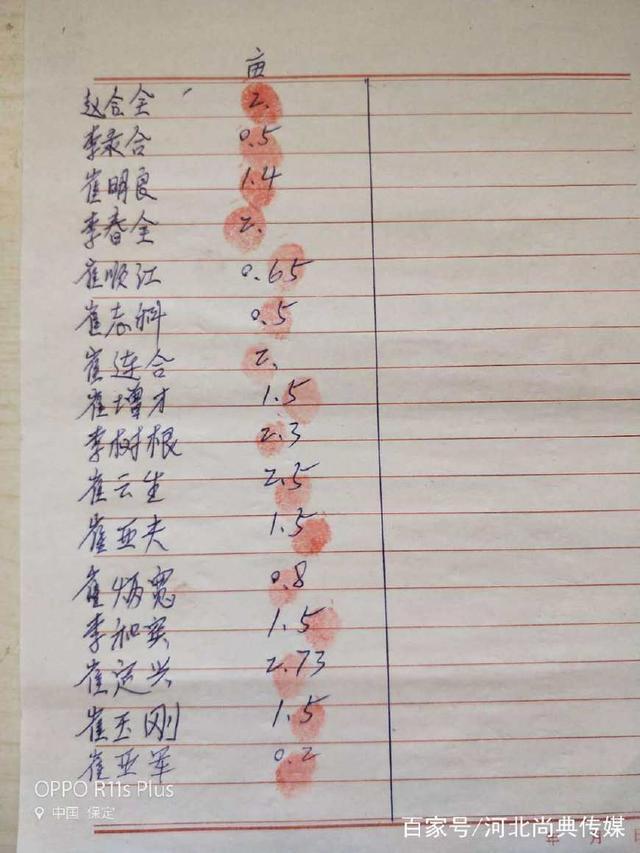 亩
赵合全 2.
李录合 0.5
崔明良 1.4
李春全 2.
崔顺江 0.65
崔志科 0.5
崔连合 2.
崔增才 1.5
李树根 2.3
崔云生 2.5
崔亚夫 1.5
崔炳宽 0.8
李和实 1.5
崔定兴 2.73
崔玉刚 1.5
崔亚军 0.2
OPPO R11s Plus
中国 保定
百家号/河北尚典传媒
年 月 日